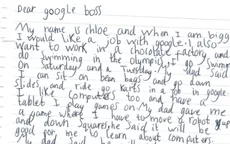 Dear google boss
My name is chloe and when I am bigger
I would like a job with google. I also
want to work in a chocolate factory and
do swimming in the olympics. I go swimming
on Saturday and a Tuesday. My dad said
I can sit on bean bags and go down
slides and ride go karts in a job in google.
I like computers too and have a
tablet I play games on. My dad gave me
a game where I have to move a robot up
and down squares, he said it will be
good for me to learn about computers.
My dad said